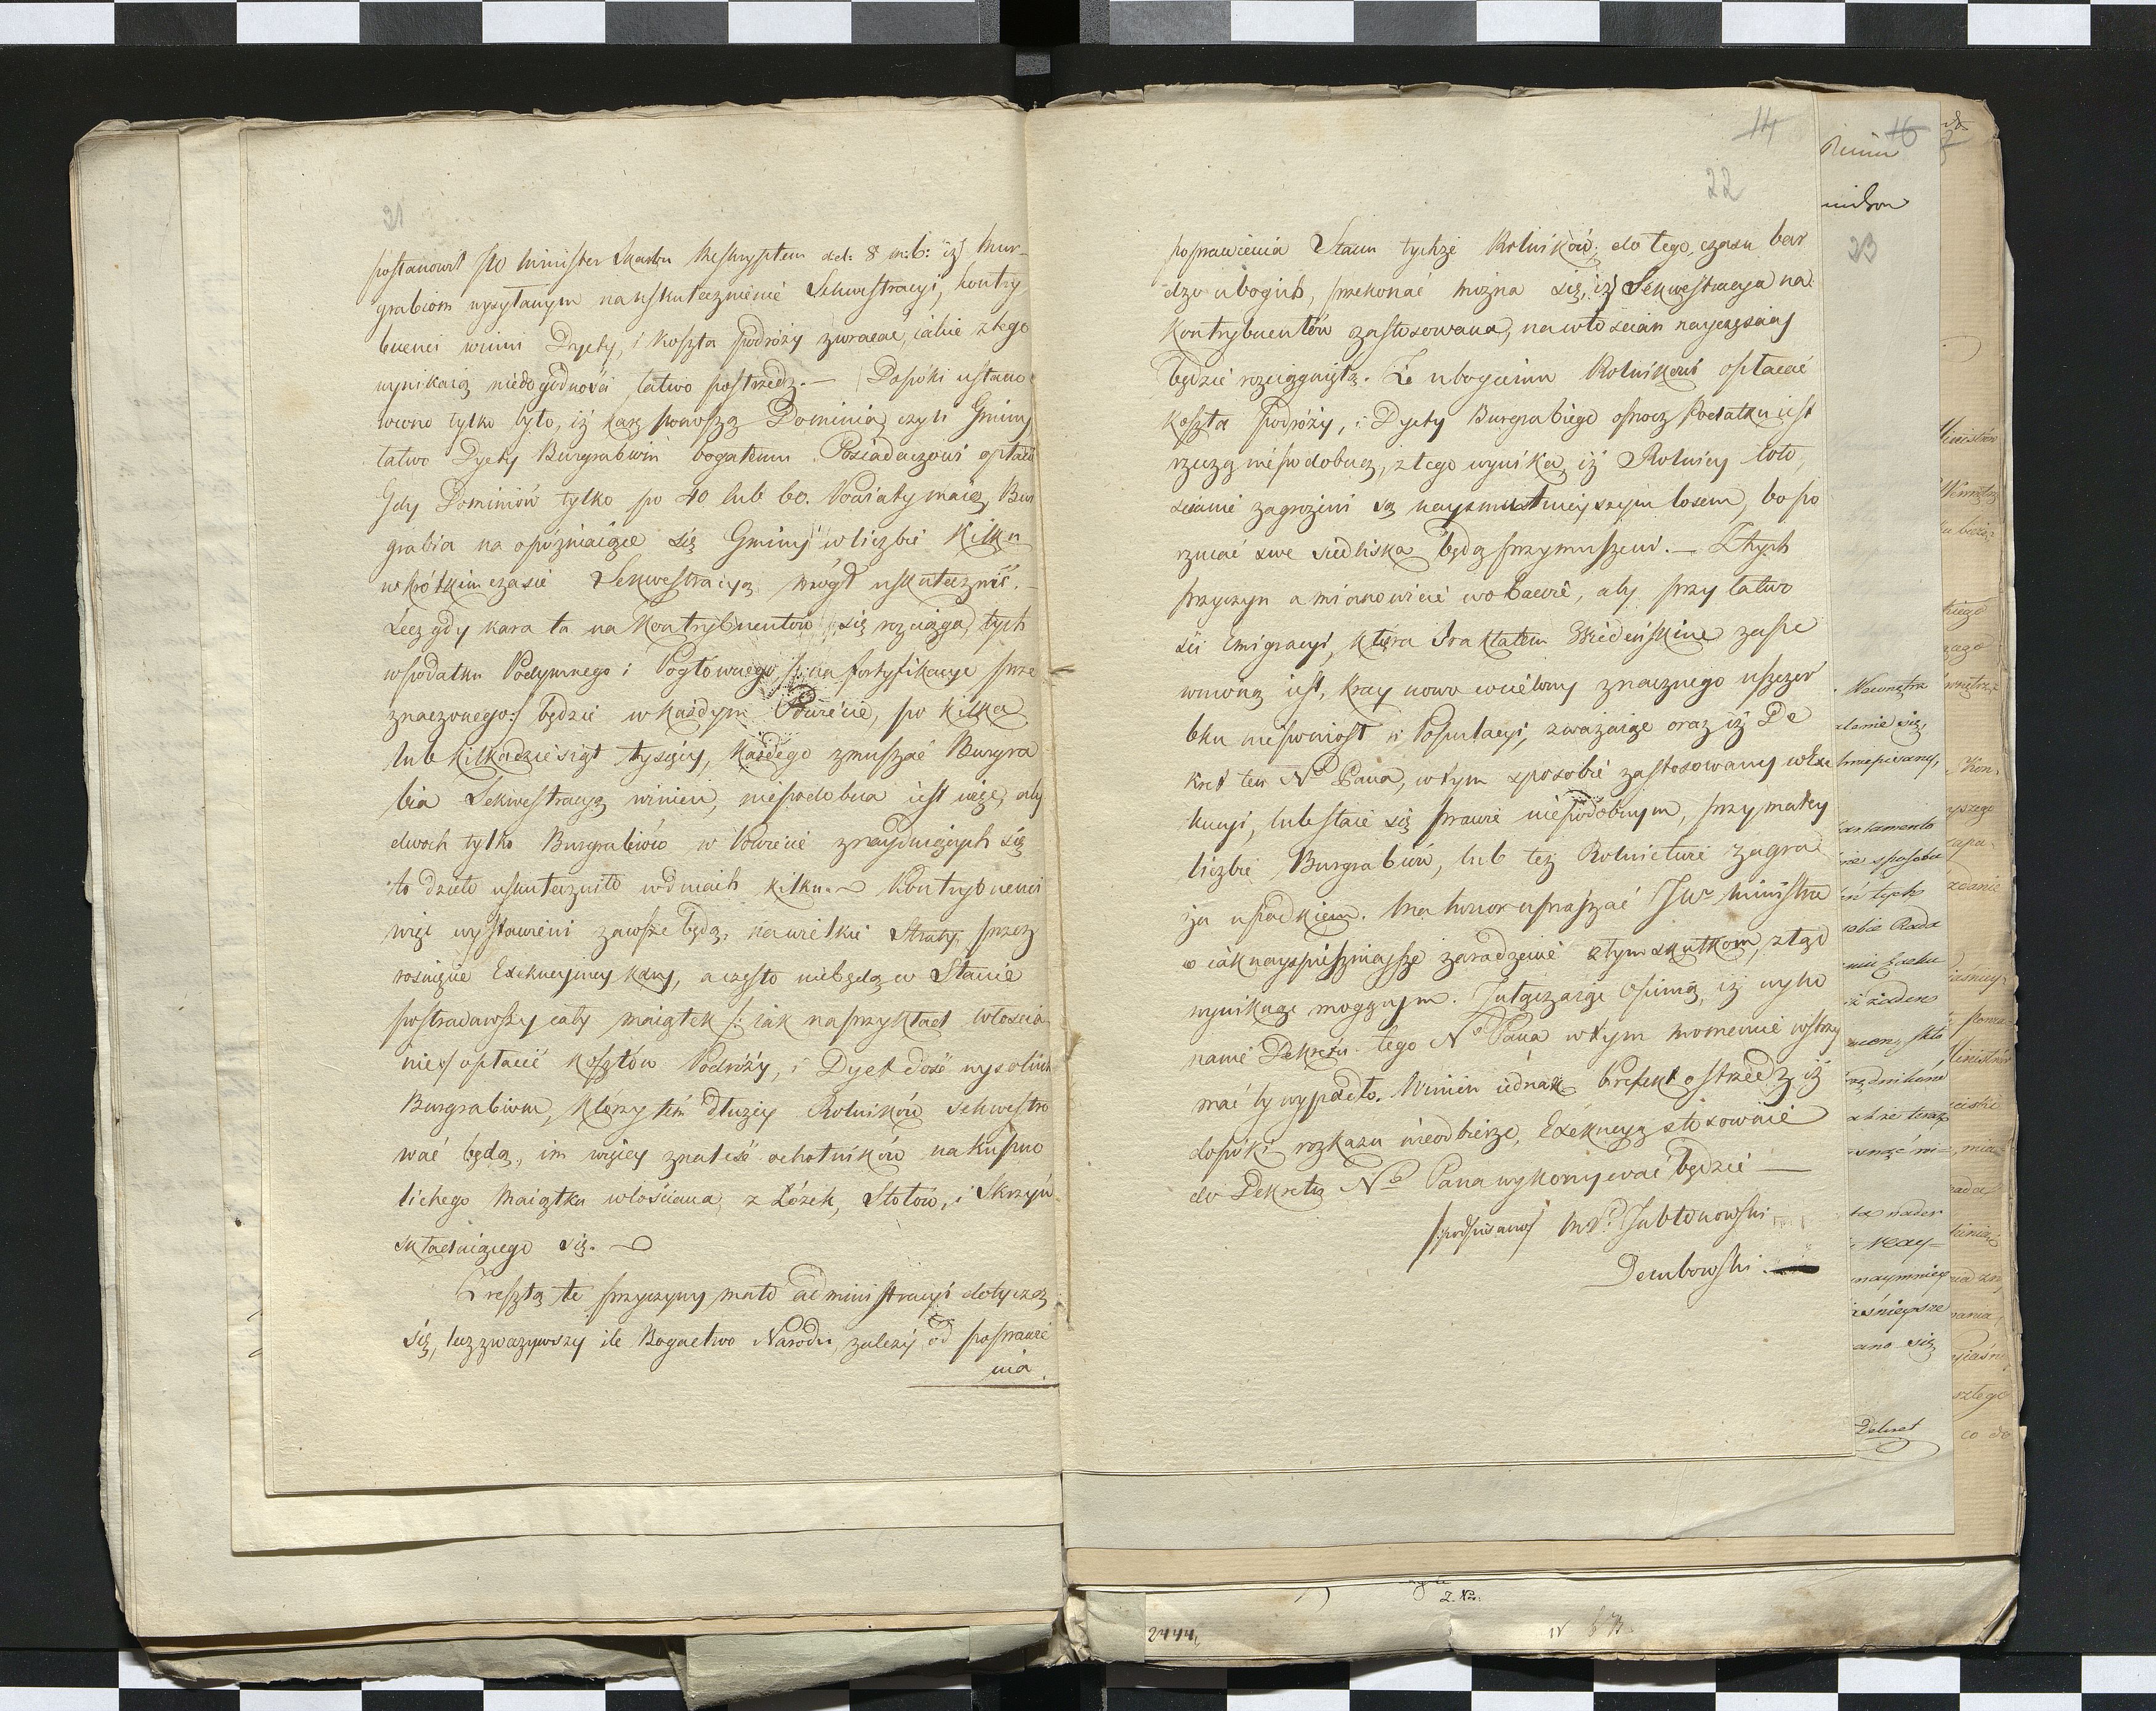 21
postanowił JW Minister Skarbu Reskryptem dd: 8 m: b: iż Bur-
grabiom wysyłanym na uskutecznienie Sekwestracyi, kontry
buenci winni Dyety, i koszta podróży zwracać, iakie z tego
wynikaią niedogodności łatwo postrzedz. — Dopóki ustano
wiono tylko było, iż karę ponoszą Dominia czyli Gminy
łatwo Dyety Burgrabiom bogatemu Posiadaczowi opłacić
Gdy Dominiów tylko po 40 lub 60. Powiaty maią, Bur
grabia na opóźniaiące się Gminy w liczbie kilku
w krótkim czasie Sekwestracyą mógł uskutecznić. —
Lecz gdy kara ta na Kontrybuentów się rozciąga, tych
w podatku Podymnego i Pogłównego /: na fortyfikacye prze
znaczonego :/ będzie w każdym Powiecie, po kilka
lub kilkadziesiąt tysięcy, każdego zmuszać Burgra
bia Sekwestracyą winien, niepodobna iest więc, aby
dwoch tylko Burgrabiów w Powiecie znayduiących się
to dzieło uskuteczniło w dniach kilku. — Kontrybuenci
więc wystawieni zawsze będą, na wielkie Straty, przez
rosnące Exekucyiney kary, a często niebędą w Stanie
postradawszy cały maiątek /: iak naprzykład włościa
nie :/ opłacić kosztów Podróży, i Dyet dość wysokich
Burgrabiom, którzy tém dłużey Rolników sekwestro
wać będą, im więcey znaleść ochotników na kupno
lichego Maiątku włościana, z Łóżek, Stołów, i Skrzyń
składaiącego się. —
Zresztą te przyczyny mało administracyi dotyczą
się, lecz zważywszy ile Bogactwo Narodu, zależy od poprawie
nia
14
22
poprawienia Stanu tychże Rolników, do tego czasu bar
dzo ubogich, przekonać można się, iż Sekwestracya na
Kontrybuentów zastosowana, na włościan nayczęściey
będzie rozciągnięta. Że ubogiemu Rolnikowi opłacać
koszta podróży, i Dyety Burgrabiego oprocz Podatku iest
rzeczą niepodobną, z tego wynika iż Rolnicy włó,
ścianie zagrożeni są naysmutnieyszym losem, bo po
rzucać swe siedliska będą przymuszeni. — Z tych
przyczyn a mianowicie w obawie, aby przy łatwo
ści Emigracyi, która Traktatem Wiedeńskim zape
wnioną iest, kray nowo wcielony znacznego uszczer
bku nieponiosł w Populacyi, zważaiąc oraz iż De
kret ten N° Pana, w tym sposobie zastosowany w Exe
kucyi, lub staie się prawie niepodobnym, przy małey
liczbie Burgrabiów, lub też Rolnictwu zagra
ża upadkiem. Ma honor upraszać JW° Ministra
o iak nayspiesznieysze zaradzenie złym skutkom, ztąd
wyniknąć mogącym. Załączaiąc Opinią, iż wyko
nanie Dekretu tego N° Pana w tym momencie wstrzy
mać by wypadło. Winien iednak Prefekt ostrzedz iż
dopóki rozkazu nieodbierze, Exekucyą stosownie
do Dekretu N° Pana wykonywać będzie —
/podpisano/ M. P. Jabłonowski
Dembowski. —
16
23
Wewnętrz
danie się,
sposobu
tych
Rada
żaden
teraz
nader
naymniey
ano się
Dekret
2444,